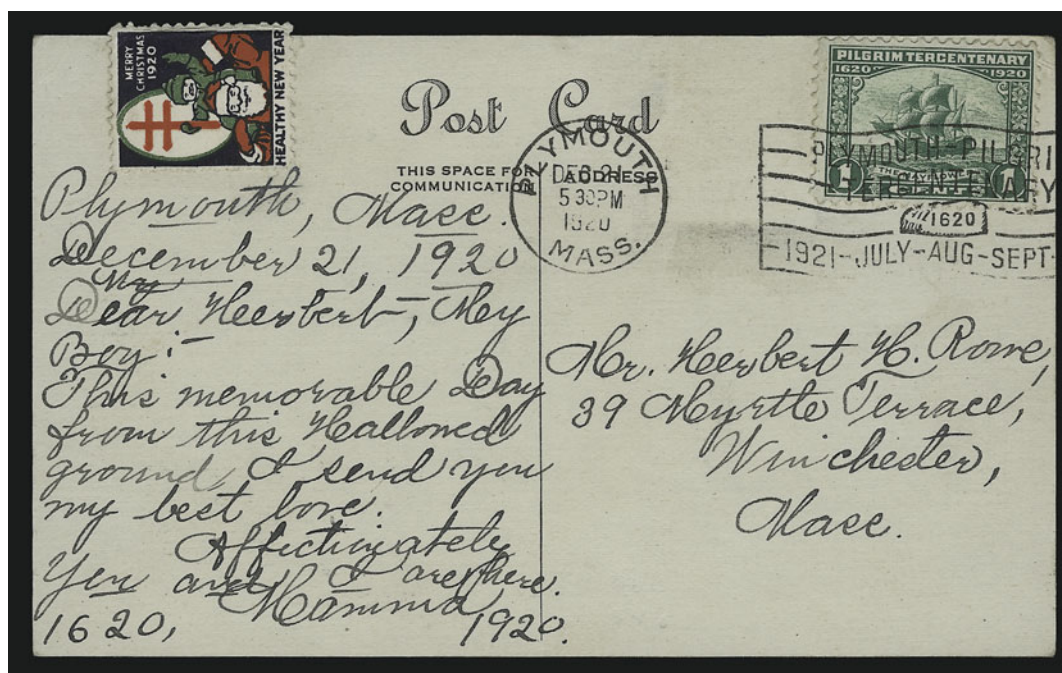 MERRY
CHRISTMAS
1920
HEALTHY NEW YEAR
Post Card
THIS SPACE FOR
COMMUNICATION
ADDRESS
PLYMOUTH
DEC 21
5 30 PM
1920
MASS.
PILGRIM TERCENTENARY
1620 1920
THE MAYFLOWER
1 CENT 1
PLYMOUTH-PILGRI
TERCENTENARY
1620
-1921-JULY-AUG-SEPT-
Plymouth, Mass.
December 21, 1920
My
Dear Heerbert, My
Boy:-
This memorable Day
from this Hallowed
ground I send you
my best love.
Affectionately
You and I are here.
Mamma
1620, 1920.
Mr. Heerbert H. Rowe,
39 Myrtle Terrace,
Winchester,
Mass.